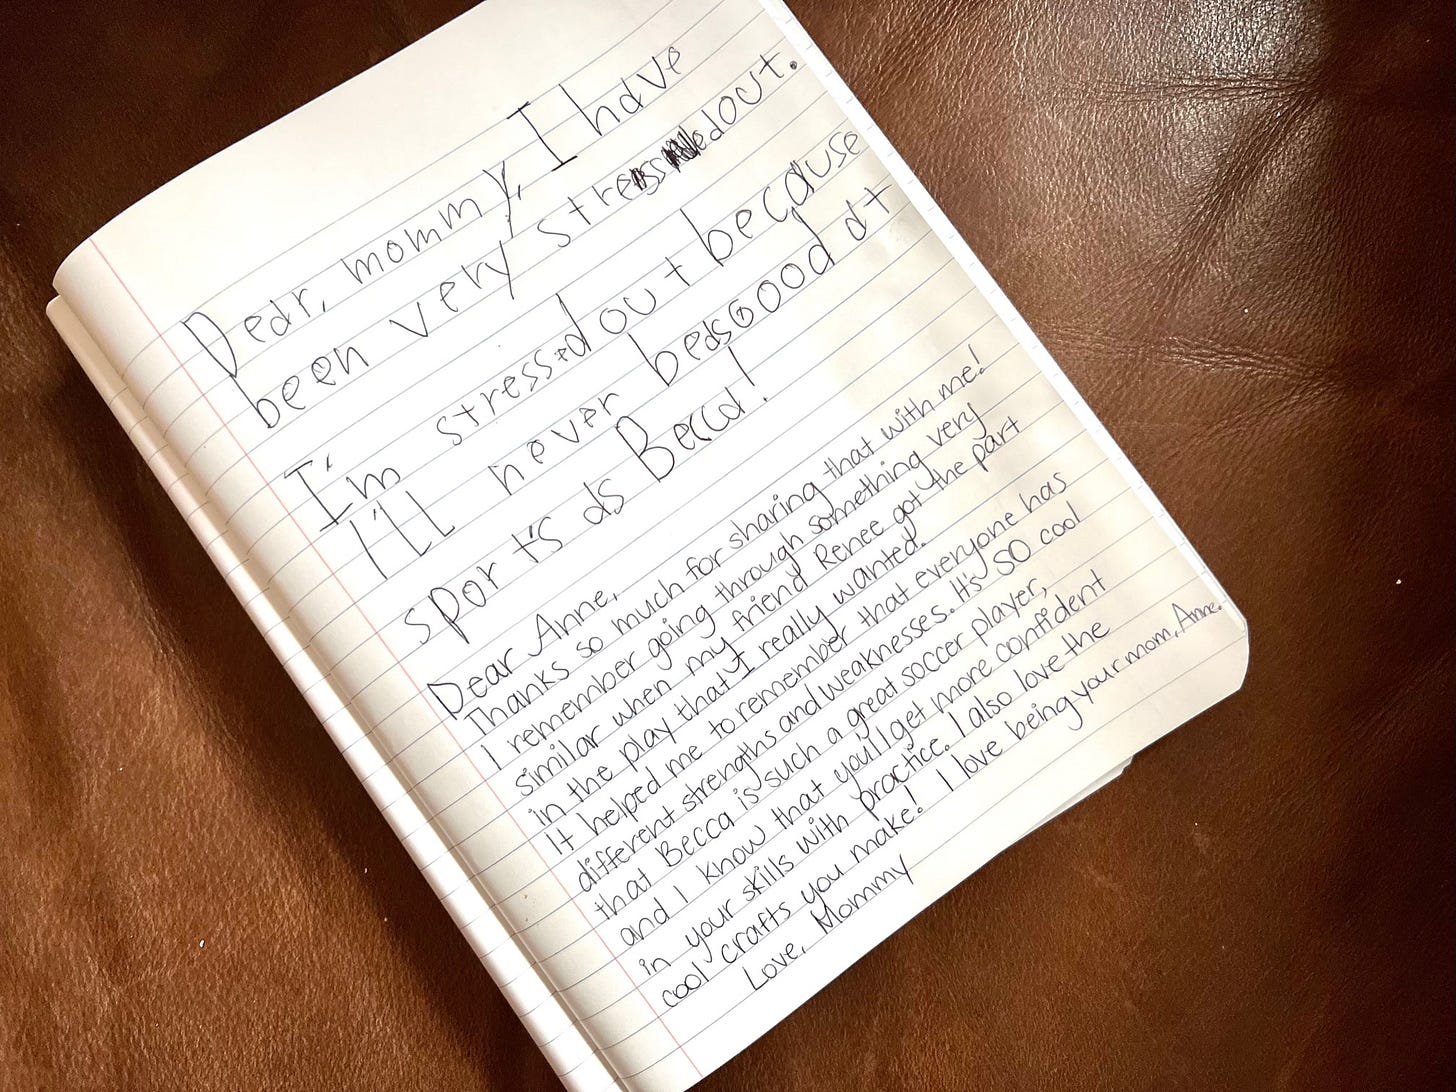 Dear, mommy, I have
been very stressed out.
I'm stressed out because
I'll never be as good at
sport's as Becca!
Dear Anne,
Thanks so much for sharing that with me!
I remember going through something very
similar when my friend Renee got the part
in the play that I really wanted.
It helped me to remember that everyone has
different strengths and weaknesses. It's so cool
that Becca is such a great soccer player,
and I know that you'll get more confident
in your skills with practice. I also love the
cool crafts you make! I love being your mom, Anne.
Love, Mommy